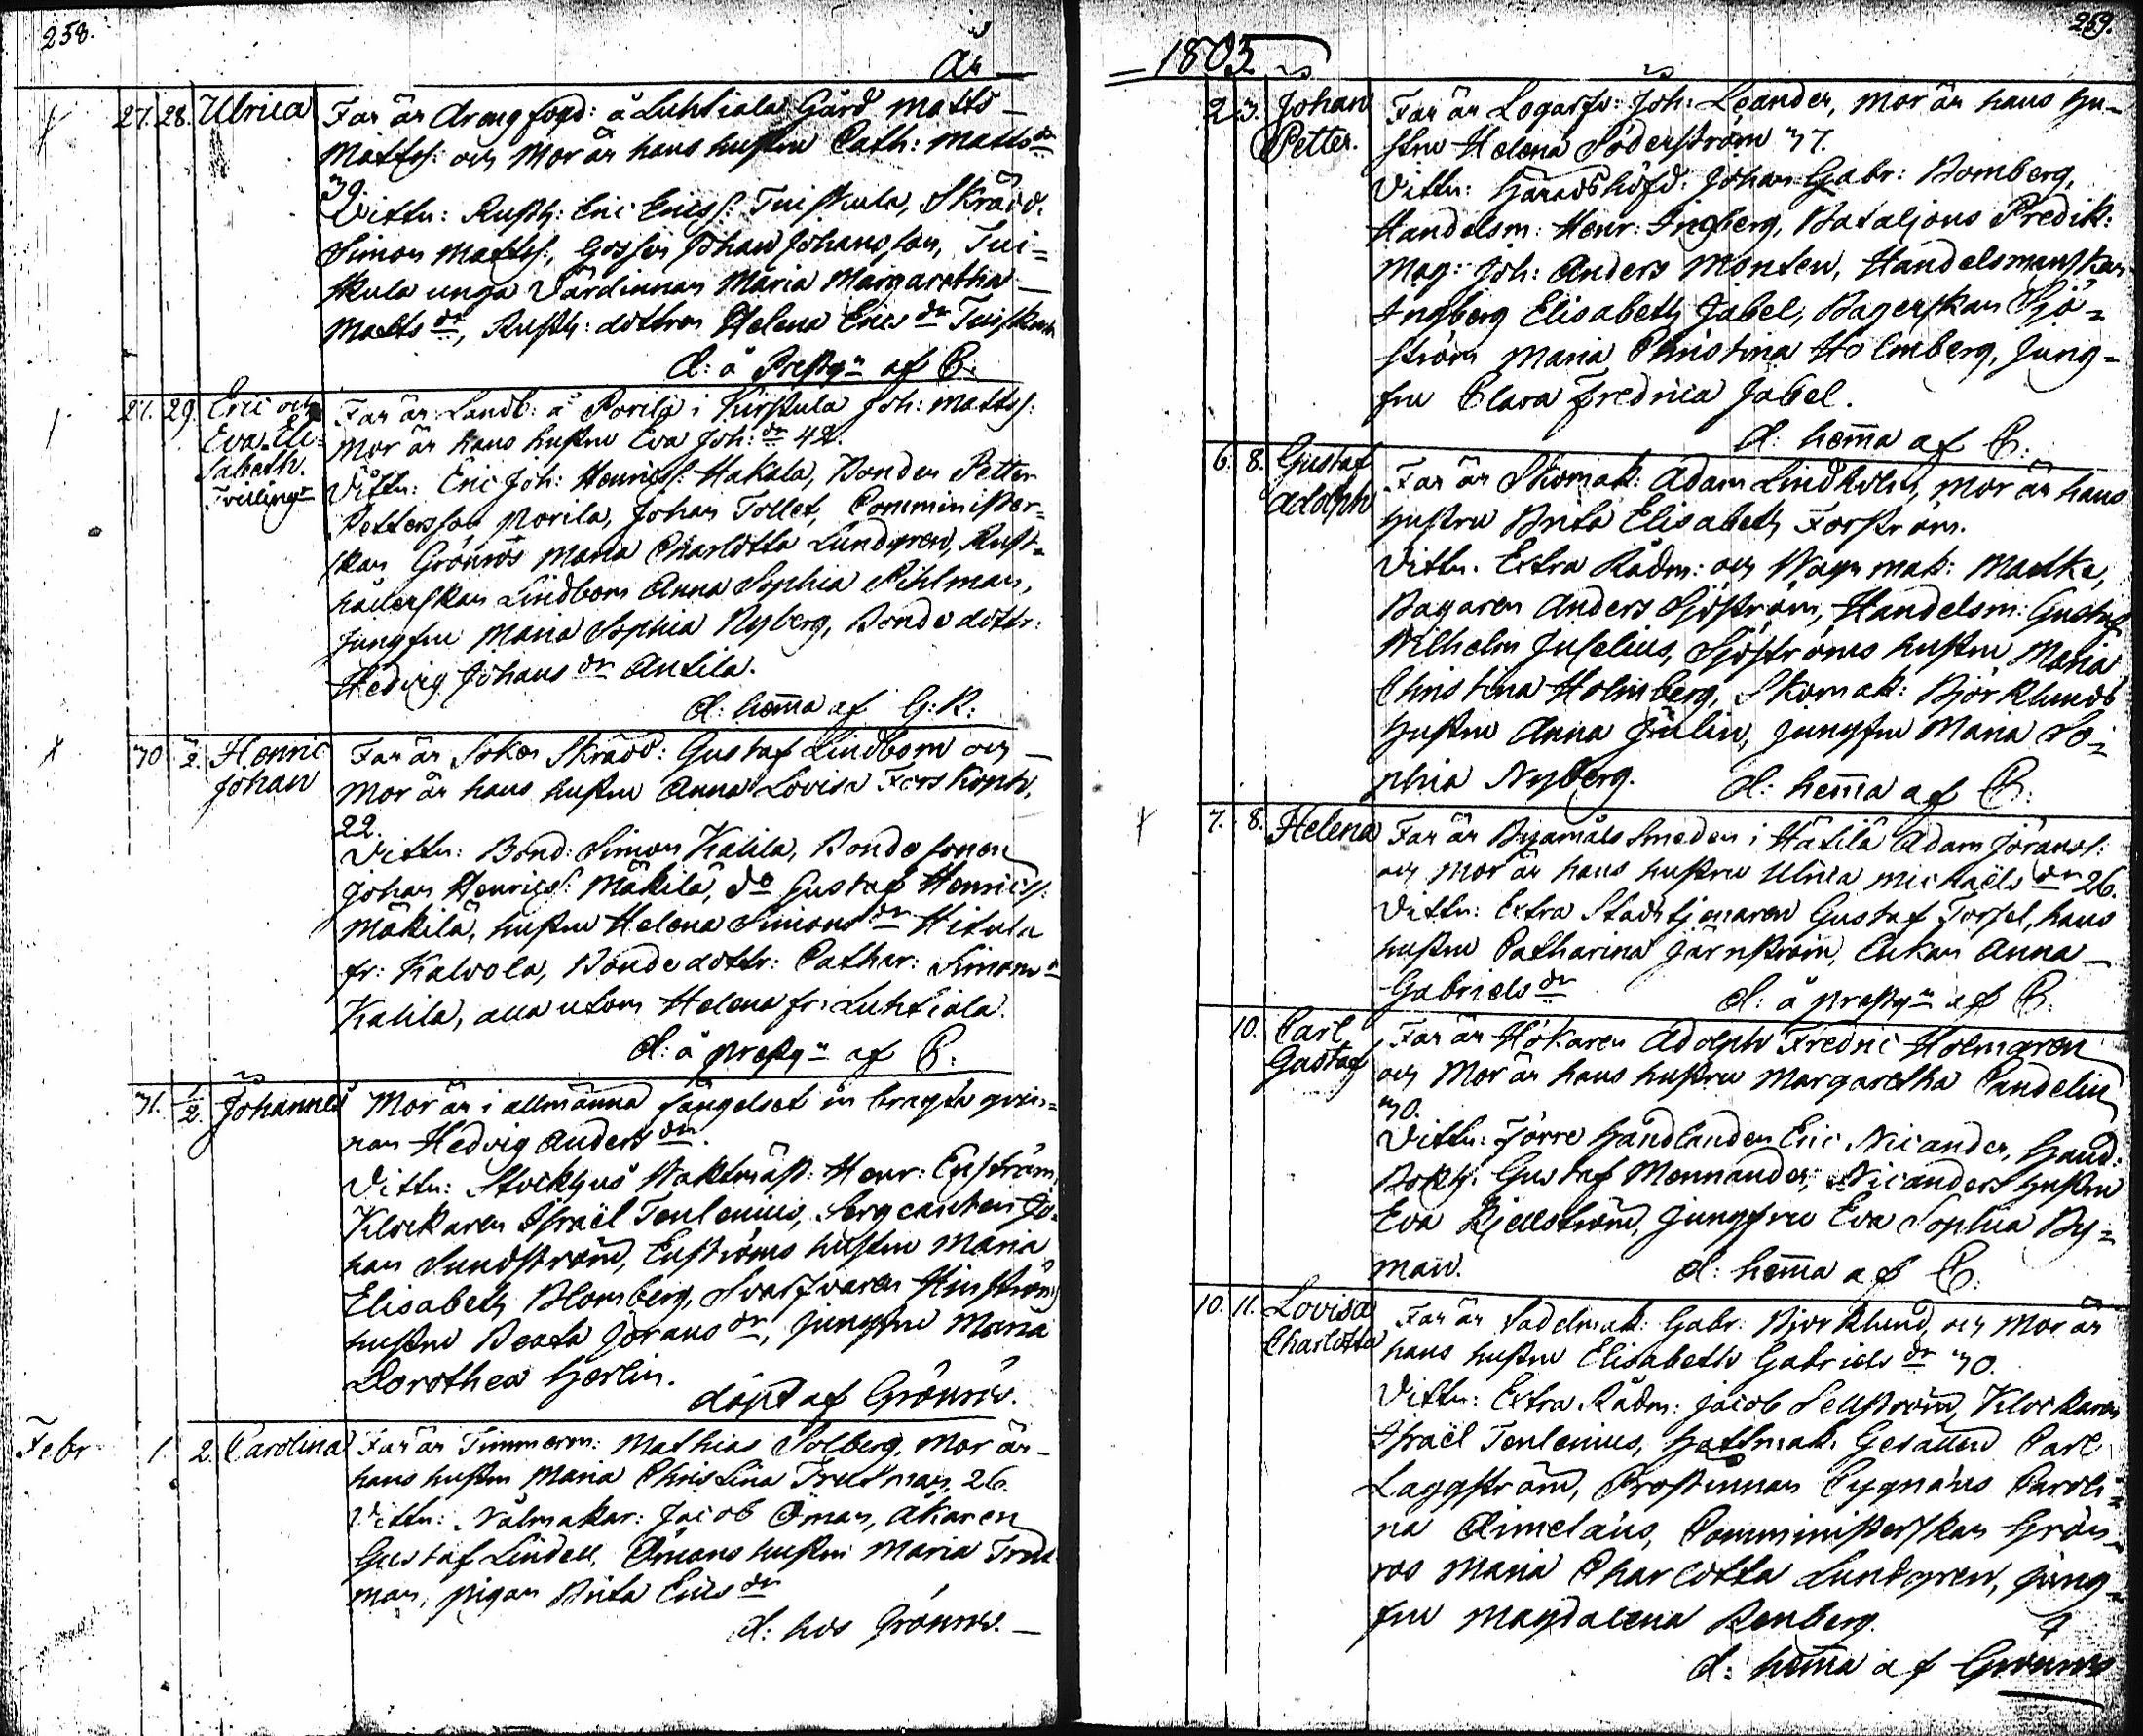 258.
År
27. 28. Ulrica Far är drengfogd: å Luhtiala Gård Matts
Mattss: och Mor är hans hustru Cath: Matts dr
30.
Vittn: Rusth: Eric Ericss: Tuiskula, Skrädd:
Simon Mattss:, Gossen Johan Johansson, Tui=
skula unga Värdinnan Maria Margaretha
Matts dr, Rusth: dottren Helena Erics dr Tuiskula
d: å Prestgn af C:
27. 29. Eric och Far är Landb: å Porila i Kirstula Joh: Mattss:
Eva Eli= Mor är hans hustru Eva Joh: dr 42.
sabeth. Vittn: Eric Joh: Henricss: Hakala, Bonden Petter
Tvillingr Pettersson Porila, Johan Tollet, Comminister=
skan Grönros Maria Charlotta Lundgren, Rust=
hållerskan Lindbom Anna Sophia Pihlman,
Jungfru Maria Sophia Nyberg, Bonde dottr:
Hedvig Johans dr Antila.
d: hemma af G:R:
30 2 Henric Far är Sokn Skrädd: Gustaf Lindbom och
Johan Mor är hans hustru Anna Lovisa
22.
Vittn: Bond: Simon Kalila, Bonde sonen
Johan Henricss: Mäkilä, do Gustaf Henricss:
Mäkilä, hustru Helena Simons dr Hitula
fr: Kalvola, Bonde dottr: Cathar: Simons dr
Kalila, alla utom Helena fr: Luhtiala.
d: å prestgn af C:
31. 1/2. Johannes Mor är i allmänna fängelset in bragta qvin=
nan Hedvig Anders dr.
Vittn: Stockhus Vaktmäst: Henr: Enström,
Klockaren Israël Tenlenius, Sergeanten Jo=
han Sundström, Enströms hustru Maria
Elisabeth Blomberg, Svarfvaren
hustru Beata Jörans dr, Jungfru Maria
Dorothea Herlin.
döpt af Grönros.
Febr 1. 2. Carolina Far är Timmerm: Mathias Solberg, Mor är
hans hustru Maria Christina Trutman, 26.
Vittn: Nålmakar: Jacob Öman, åkaren
Gustaf Lindell, Ömans hustru Maria Trut
man, pigan Brita Erics dr
d: hos Grönros.
259.
1803
2. 3. Johan Far är Logarfv: Joh: Leander, Mor är hans hu=
Petter. stru Helena Söderström 37.
Vittn: Häradshöfd: Johan Gabr: Bomberg,
Handelsm: Henr: Ingberg, Bataljons Predik:
Mag: Joh: Anders Monten, Handelsmanskan
Ingberg Elisabeth Jabel, Bagerskan Sjö=
ström Maria Christina Holmberg, Jung=
fru Clara Fredrica Jabel.
d: hemma af C:
6. 8. Gustaf Far är Skomak: Adam Lindholm, Mor är hans
Adolph hustru Brita Elisabeth Forström.
Vittn. Extra Rådm: och Vagnmak: Maetke,
Bagaren Anders Sjöström, Handelsm: Gustaf
Wilhelm Juselius, Sjöströms hustru Maria
Christina Holmberg, Skomak: Björklunds
Hustru Anna Julin, Jungfru Maria So=
phia Nyberg. d: hemma af C:
7. 8. Helena Far är Byamåls Smeden i Hätilä Adam Jöranss:
och Mor är hans hustru Ulrica Michaëls dr 26.
Vittn: Extra Stadstjenaren Gustaf Torsel, hans
hustru Catharina Järnström, Enkan Anna
Gabriels dr d: å prestgn af C:
10. Carl Far är Hökaren Adolph Fredric Holmgren
Gustaf och Mor är hans hustru Margaretha Sandelin
30.
Vittn: Förre Handlanden Eric Nicander, Hand:
Bokh. Gustaf Mennander, Nicanders hustru
Eva Kjellström, Jungfru Eva Sophia By=
man. d: hemma af C:
10. 11. Lovisa Far är Sadelmak: Gabr: Björklund, och Mor är
Charlotta hans hustru Elisabeth Gabriels dr 30.
Vittn: Extra Rådm: Jacob Sellström, Klockaren
Israël Tenlenius, Hattmak: Gesällen Carl
Laggström, Prostinnan Cygnæus Caroli=
na Aimelæus, Comministerskan Grön=
ros Maria Charlotta Lundgren, Jung=
fru Magdalena Renberg.
d: hemma af Grönros